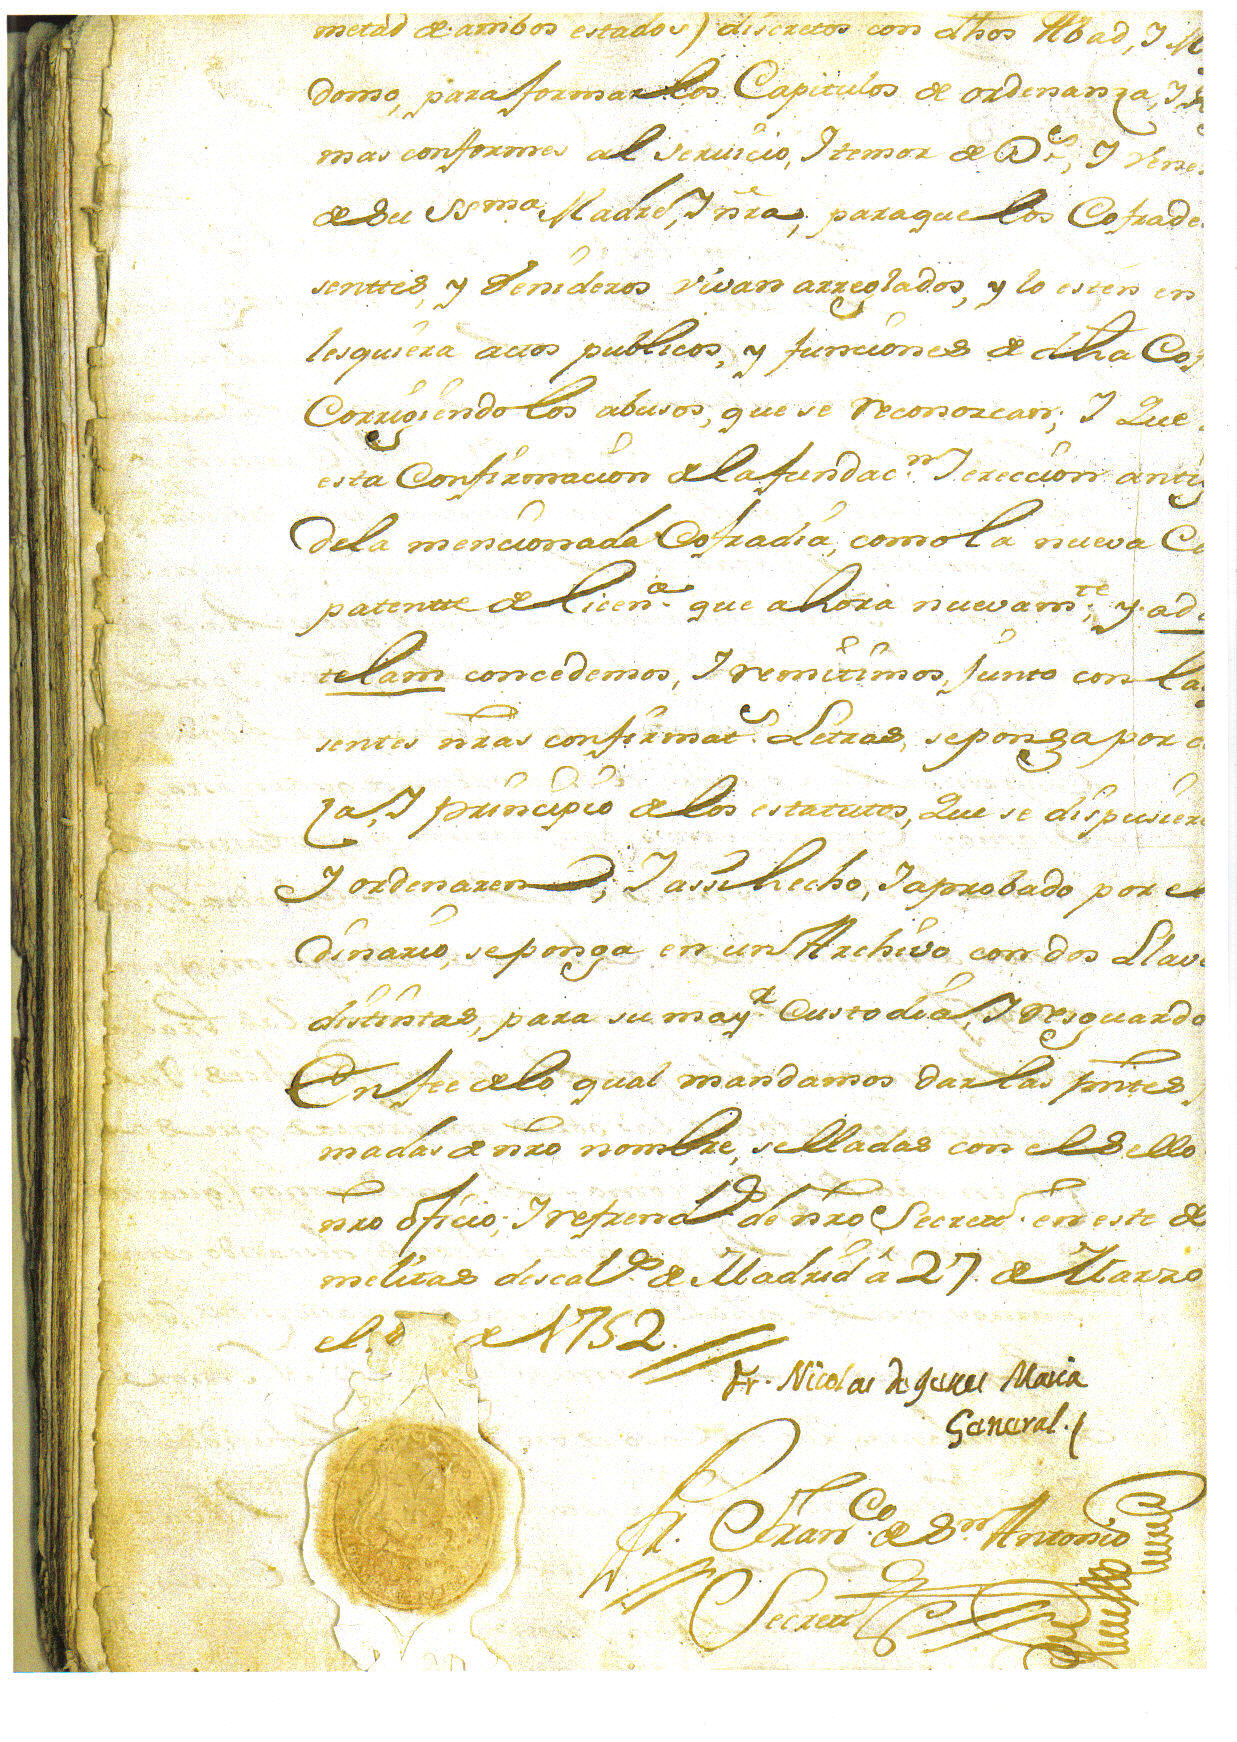 metad de ambos estados) discretos con dhos Abad, I M
domo, para formar los Capitulos de ordenanza, I,
mas conformes al servicio, I temor de Ds., I vene
de su SSma. Madre, I nra, paraque los Cofrade
senttes, y benideros vivan arreglados, y lo estén en
lesquiera actos publicos, y funciones de dha Cof
Corrigiendo los abusos, que se reconozcan; I Que
esta Confirmacion de la fundacn. I ereccion anti
de la mencionada Cofradía, como la nueva Co
patentte de licena. que ahora nuevamte., y ad
telam concedemos, I remitimos, junto con las
sentes nras confirmats. Letras, se ponga por c
za, I principio de los estatutos, Que se dispusiere
I ordenaren; I assi hecho, I aprobado por el
dinario, se ponga en un Archivo con dos Llave
distintas, para su mayr. Custodia, I resguardo
En fee de lo qual mandamos dar las pntes,
madas de nro nombre, selladas con el Sello
nro oficio; I refrendds. de nro Secret. en este de
melitas descalos. de Madrid â 27. de Marzo
el. de 1752.
Fr. Nicolas de Jesus Maria
General.
Fr. Franco. de Sn. Antonio
Secret